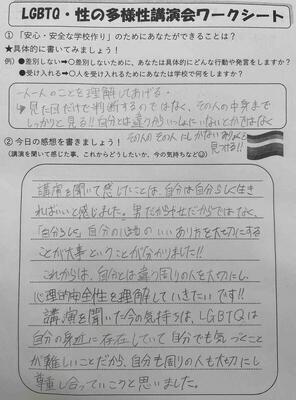 LGBTQ・性の多様性講演会ワークシート
①「安心・安全な学校作り」のためにあなたができることは？
★具体的に書いてみましょう！
例）●差別しない➡〇差別しないために、あなたは具体的にどんな行動や発言をしますか？
●受け入れる➡〇人を受け入れるためにあなたは学校で何をしますか？
一人一人のことを理解してあげる。
↳見た目だけで判断するのではなく、その人の中身まで
しっかりと見る!!自分とは違うからいっしょにいないとかではなく
その人のその人にしかない
見つける!!
②今日の感想を書きましょう！
（講演を聞いて感じた事、これからどうしたいか、今の気持ちなど☺）
講演を聞いて感じたことは、自分は自分らしく生き
ればいいと感じました。男だから女だからではなく、
「自分らしく」自分の心地のいいあり方を大切にする
ことが大事ということが分かりました!!
これからは、自分とは違う周りの人を大切にし、
心理的安全性を理解していきたいです!!
講演を聞いた今の気持ちは、LGBTQは
自分の身近に存在していて自分でも気づくこと
が難しいことだから、自分も周りの人も大切にし
尊重し合っていこうと思いました。